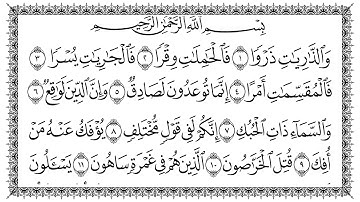 بِسْمِ اللَّهِ الرَّحْمَٰنِ الرَّحِيمِ
وَالذَّارِيَاتِ ذَرْوًا ١ فَالْحَامِلَاتِ وِقْرًا ٢ فَالْجَارِيَاتِ يُسْرًا ٣
فَالْمُقَسِّمَاتِ أَمْرًا ٤ إِنَّمَا تُوعَدُونَ لَصَادِقٌ ٥ وَإِنَّ الدِّينَ لَوَاقِعٌ ٦
وَالسَّمَاءِ ذَاتِ الْحُبُكِ ٧ إِنَّكُمْ لَفِي قَوْلٍ مُّخْتَلِفٍ ٨ يُؤْفَكُ عَنْهُ مَنْ
أُفِكَ ٩ قُتِلَ الْخَرَّاصُونَ ١٠ الَّذِينَ هُمْ فِي غَمْرَةٍ سَاهُونَ ١١ يَسْأَلُونَ